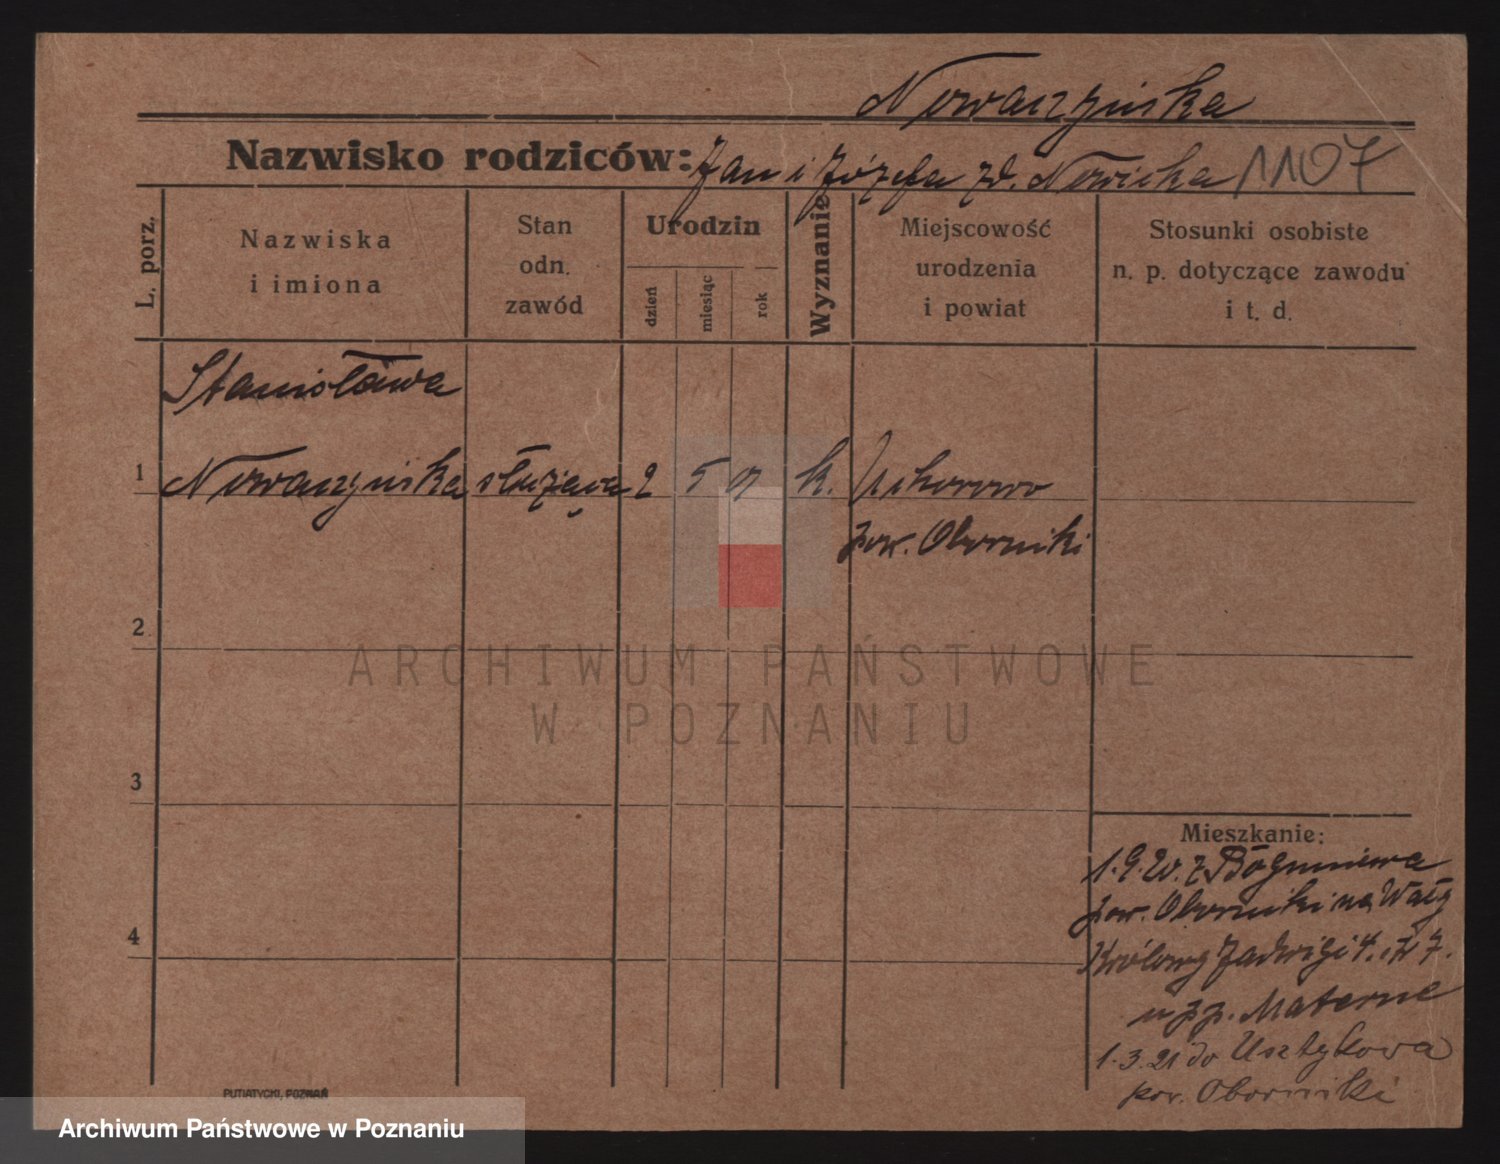 Nowaczyńska
Nazwisko rodziców: Jan i Józefa zd. Nowicka 1107
L. porz.
Nazwiska
i imiona
Stan
odn.
zawód
Urodzin
dzień
miesiąc
rok
Wyznanie
Miejscowość
urodzenia
i powiat
Stosunki osobiste
n. p. dotyczące zawodu
i t. d.
Stanisława
1 Nowaczyńska służąca 2 5 k. Uchorowo
pow. Oborniki
2
3
4
Mieszkanie:
1.9.20. z Boguniewa
pow. Oborniki na Wały
Królowej Jadwigi 4. 7.
u pp. Materne
1.3.21 do
pow. Oborniki
PUTIATYCKI, POZNAŃ
ARCHIWUM PAŃSTWOWE
W POZNANIU
Archiwum Państwowe w Poznaniu